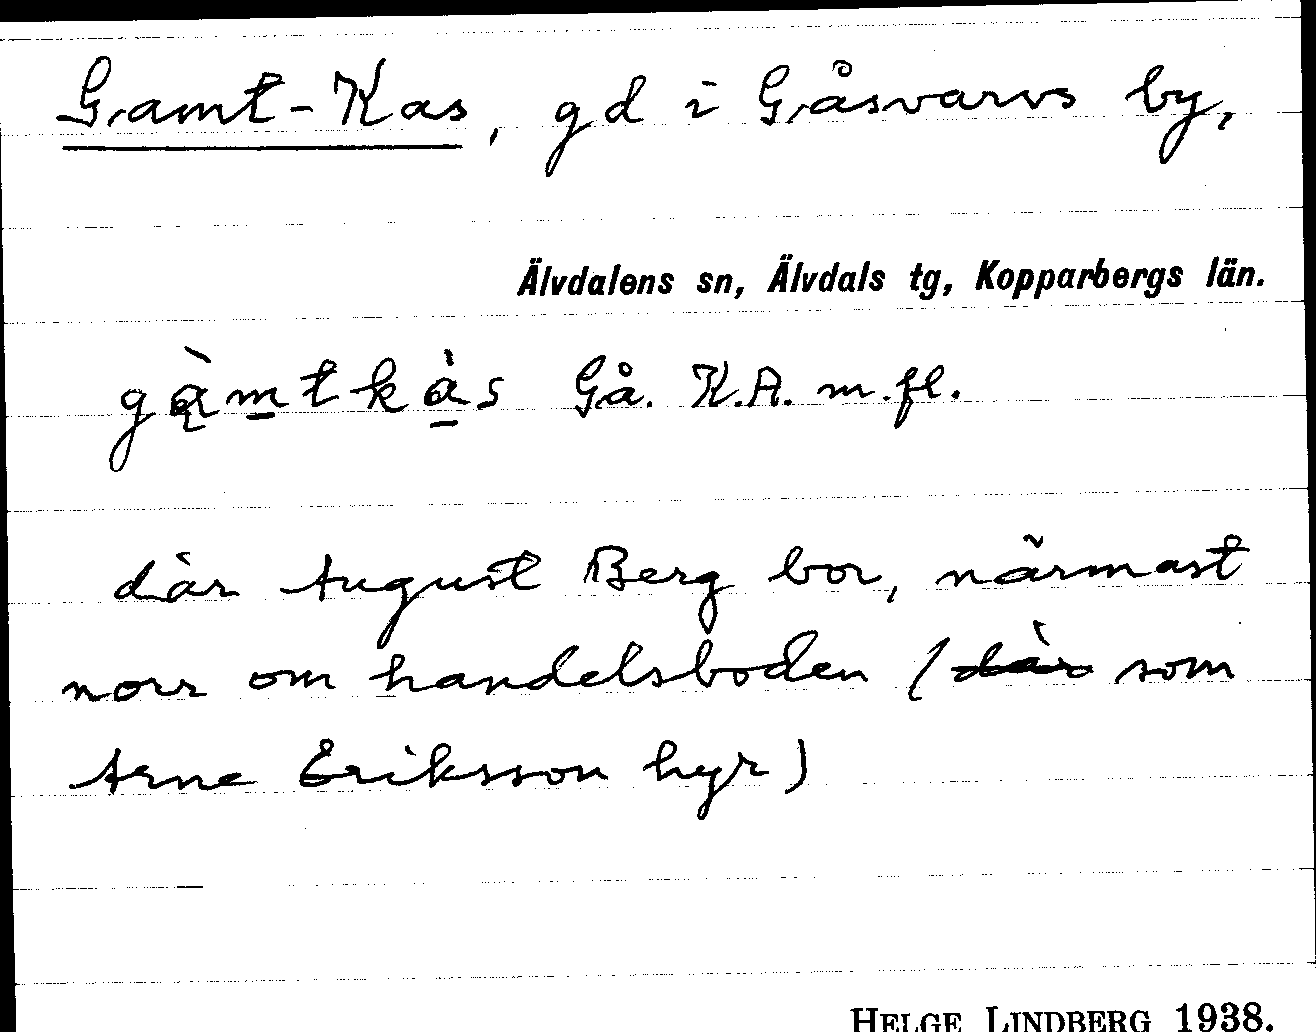 Gamt-Kas, gd i Gåsvarvs by,
Älvdalens sn, Älvdals tg, Kopparbergs län.
gą̀m̲tkà̲s Gå. K.A. m.fl.
där August Berg bor, närmast
norr om handelsboden (där som
Arne Eriksson hyr)
HELGE LINDBERG 1938.